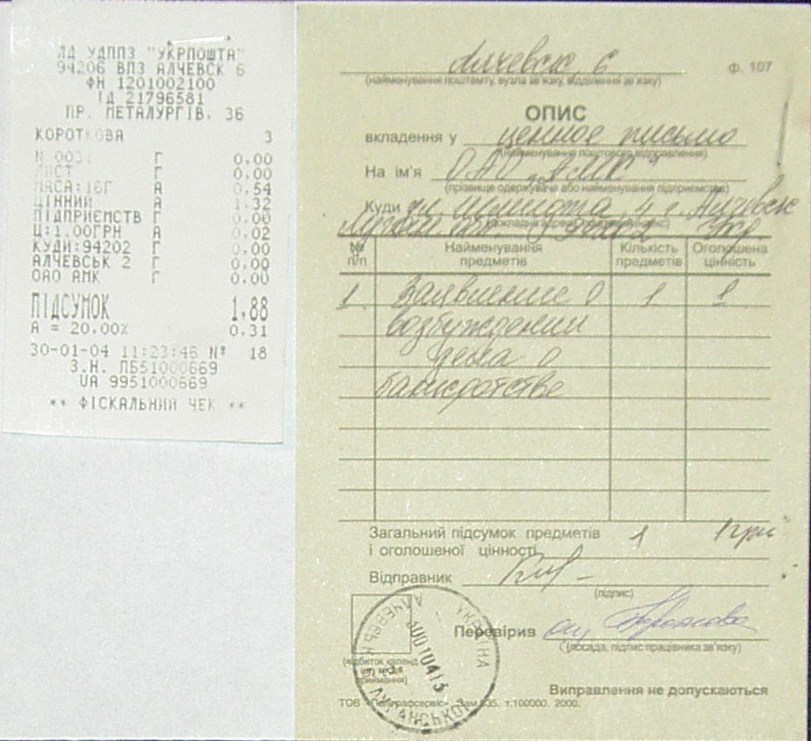 ЛД УДППЗ "УКРПОШТА"
94206 ВПЗ АЛЧЕВСК 6
ФН 1201002100
ІД 21796581
ПР. МЕТАЛУРГІВ, 36
КОРОТКОВА 3
N 0031 Г 0.00
ЛИСТ Г 0.00
МАСА:16Г А 0.54
ЦІННИЙ А 1.32
ПІДПРИЄМСТВ Г 0.00
Ц:1.00ГРН А 0.02
КУДИ:94202 Г 0.00
АЛЧЕВСЬК 2 Г 0.00
ОАО АМК Г 0.00
ПІДСУМОК 1.88
А = 20.00% 0.31
30-01-04 11:23:46 № 18
З.Н. ПБ51000669
UA 9951000669
** ФІСКАЛЬНИЙ ЧЕК **
Алчевск, 6
ф. 107
(найменування поштамту, вузла зв'язку, відділення зв'язку)
ОПИС
вкладення у ценное письмо
(найменування поштового відправлення)
На ім'я ОАО "АМК"
(прізвище одержувача або найменування підприємства)
Куди ул. Шмидта, 4 г. Алчевск
94202 Укр
№ п/п Найменування предметів Кількість предметів Оголошена цінність
1 Заявление о 1 1
возбуждении
дела о
банкротстве
Загальний підсумок предметів
і оголошеної цінності 1 1 грн
Відправник
(підпис)
Перевірив
(посада, підпис працівника зв'язку)
УКРАЇНА
АЛЧЕВСЬК 6 ЛУГАНСЬКОЇ
(відбиток календ.
приймання)
Виправлення не допускаються
ТОВ Зам. 635. т.100000. 2000.